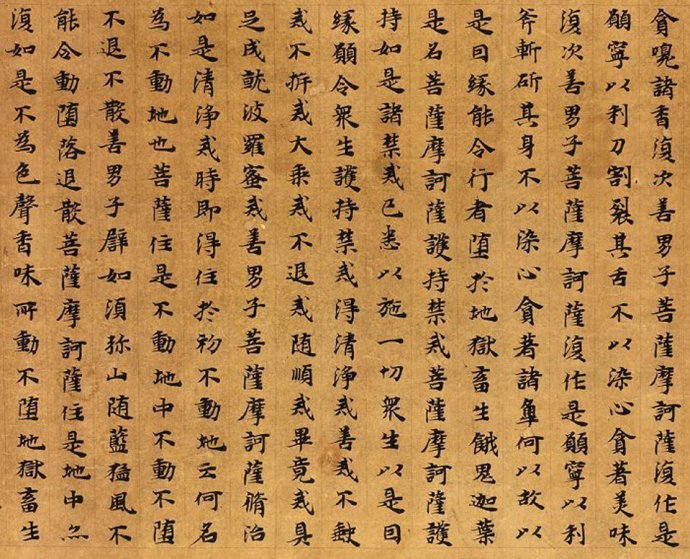 貪嗅諸香復次善男子菩薩摩訶薩復作是
願寧以利刀割裂其舌不以染心貪著美味
復次善男子菩薩摩訶薩復作是願寧以利
斧斬斫其身不以染心貪著諸觸何以故以
是因緣能令行者墮於地獄畜生餓鬼迦葉
是名菩薩摩訶薩護持禁戒菩薩摩訶薩護
持如是諸禁戒已悉以施一切衆生以是因
緣願令衆生護持禁戒得清淨戒善戒不缺
戒不析戒大乘戒不退戒随順戒畢竟戒具
足成就波羅蜜戒善男子菩薩摩訶薩脩治
如是清淨戒時即得住於初不動地云何名
為不動地也菩薩住是不動地中不動不墮
不退不散善男子譬如須弥山随藍猛風不
能令動墮落退散菩薩摩訶薩住是地中亦
復如是不為色聲香味所動不墮地獄畜生